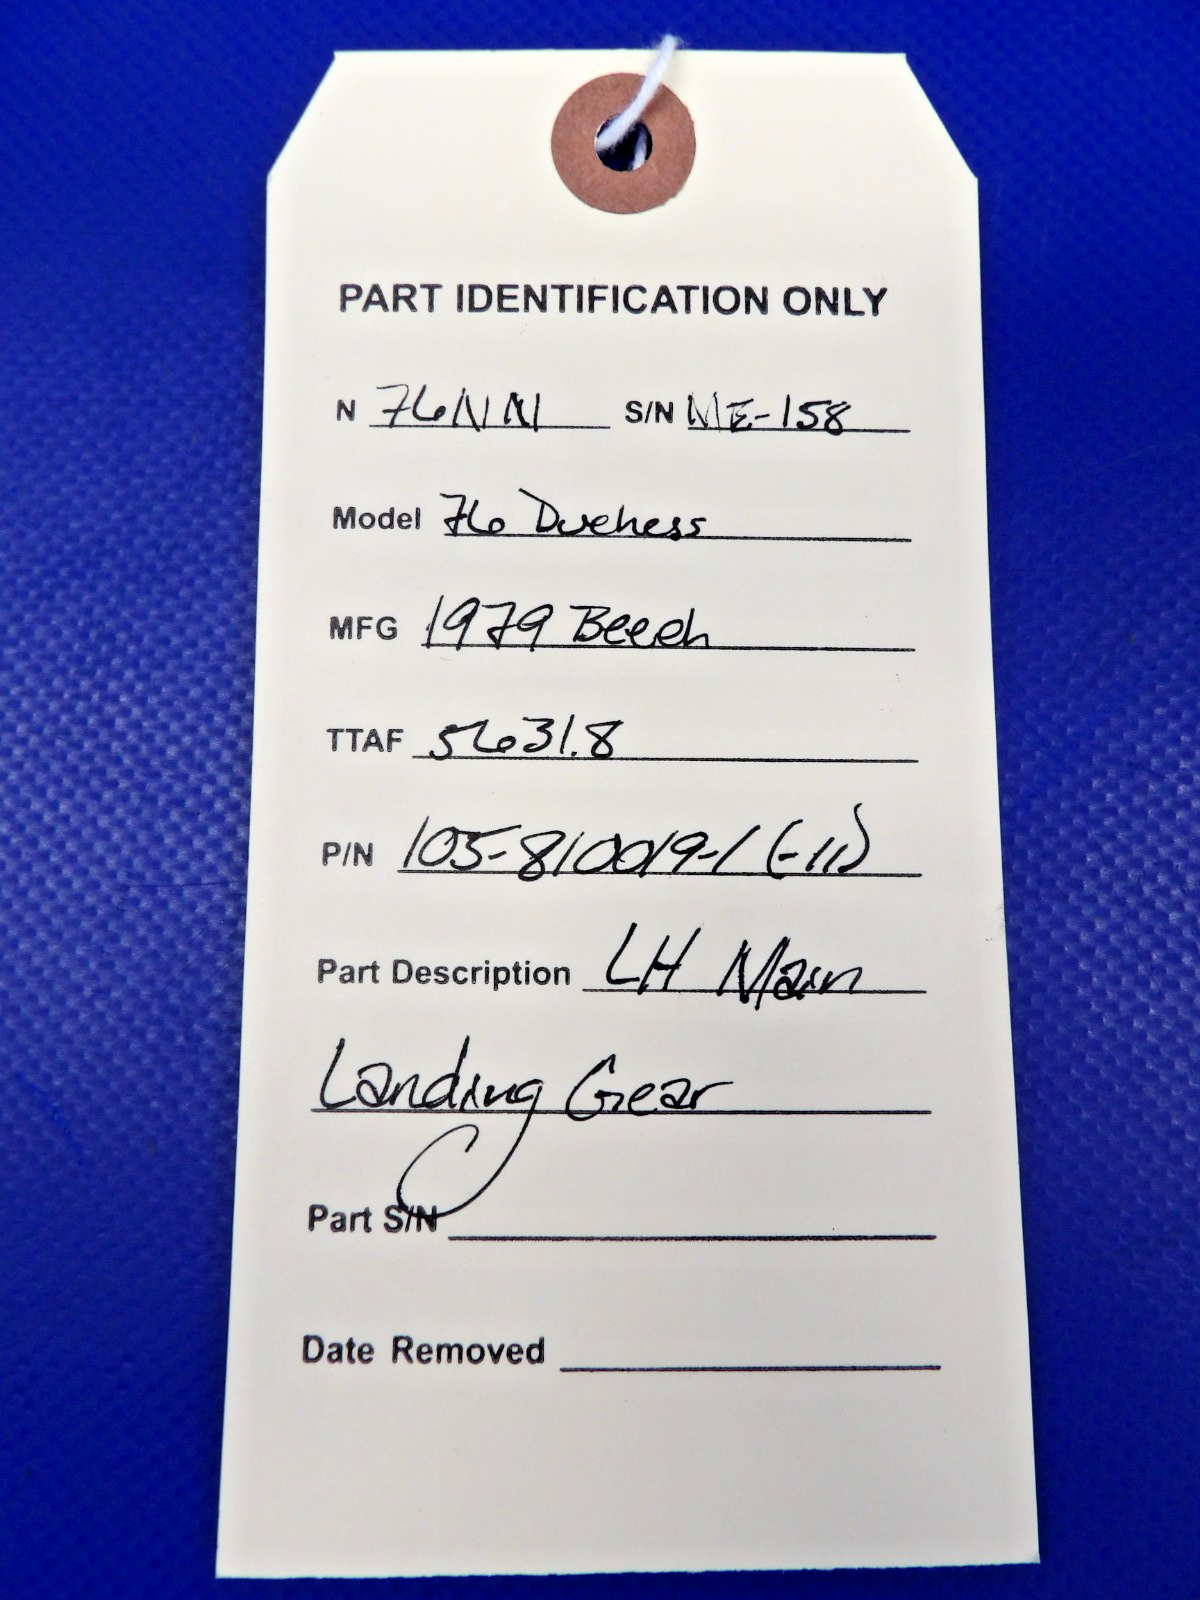 PART IDENTIFICATION ONLY
N 76NN S/N ME-158
Model 76 Duchess
MFG 1979 Beech
TTAF 5631.8
P/N 105-810019-1 (-11)
Part Description LH Main
Landing Gear
Part S/N
Date Removed